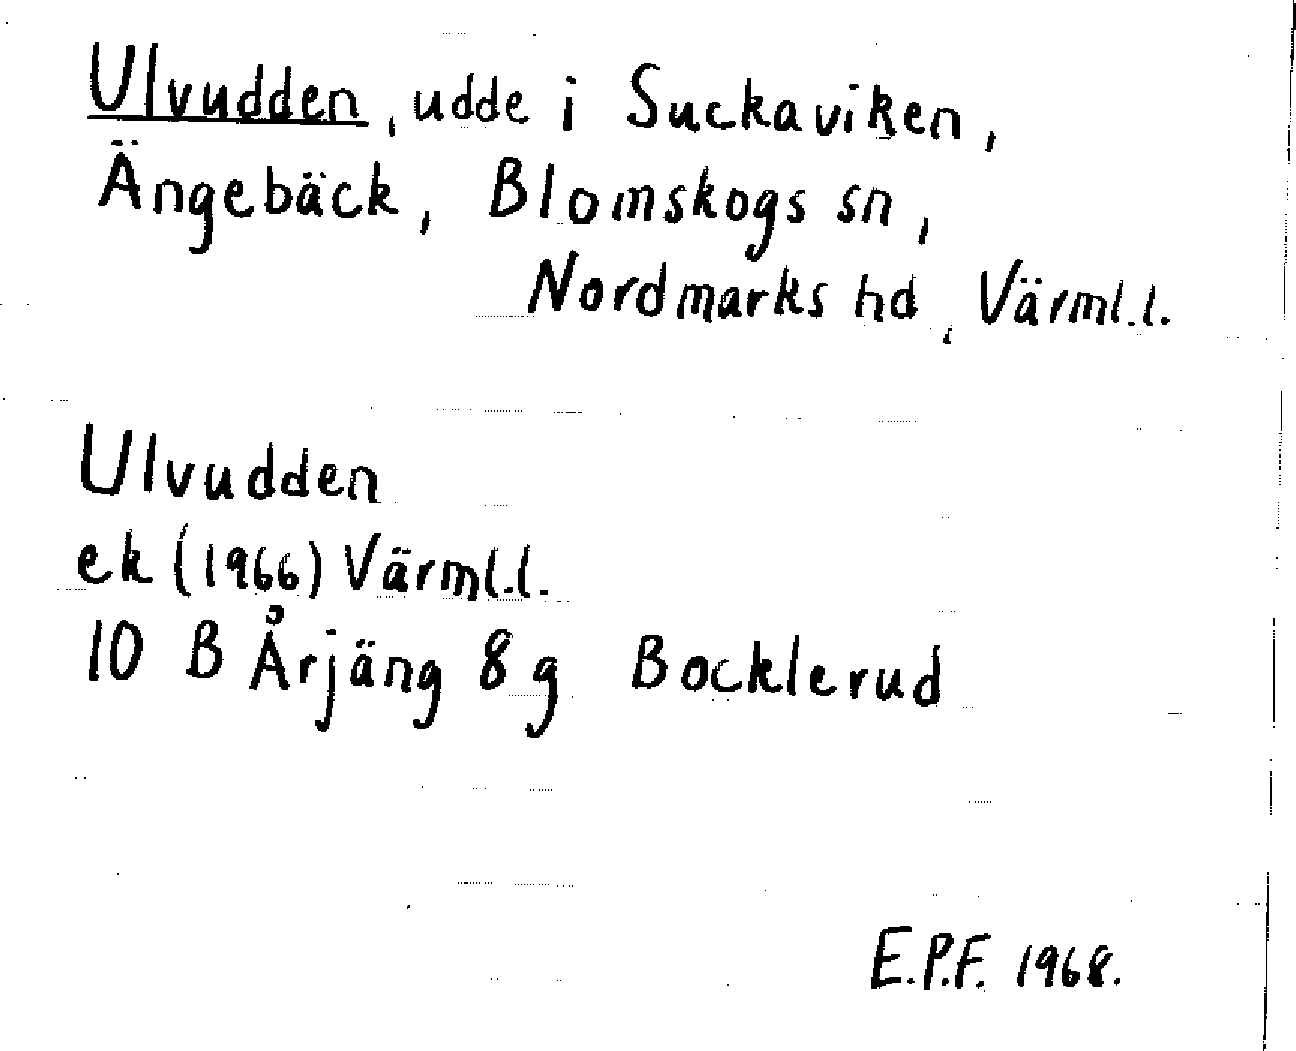 Ulvudden, udde i Suckaviken,
Ängebäck, Blomskogs sn,
Nordmarks hd, Värml.l.
Ulvudden
ek (1966) Värml.l.
10 B Årjäng 8 g Bocklerud
E.P.F. 1968.